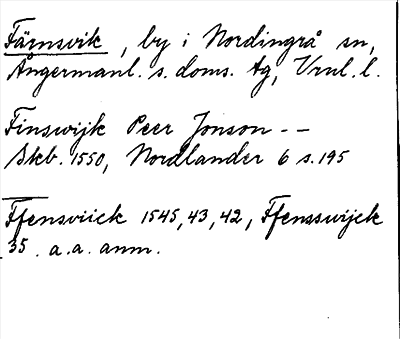 Färnsvik, by i Nordingrå sn,
Ångermanl. s. doms. tg, Vnnl. l.
Finswijk Peer Jonson - -
Skb. 1550, Nordlander 6 s. 195
Ffensviick 1545, 43, 42, Ffensswijck
35. a. a. anm.